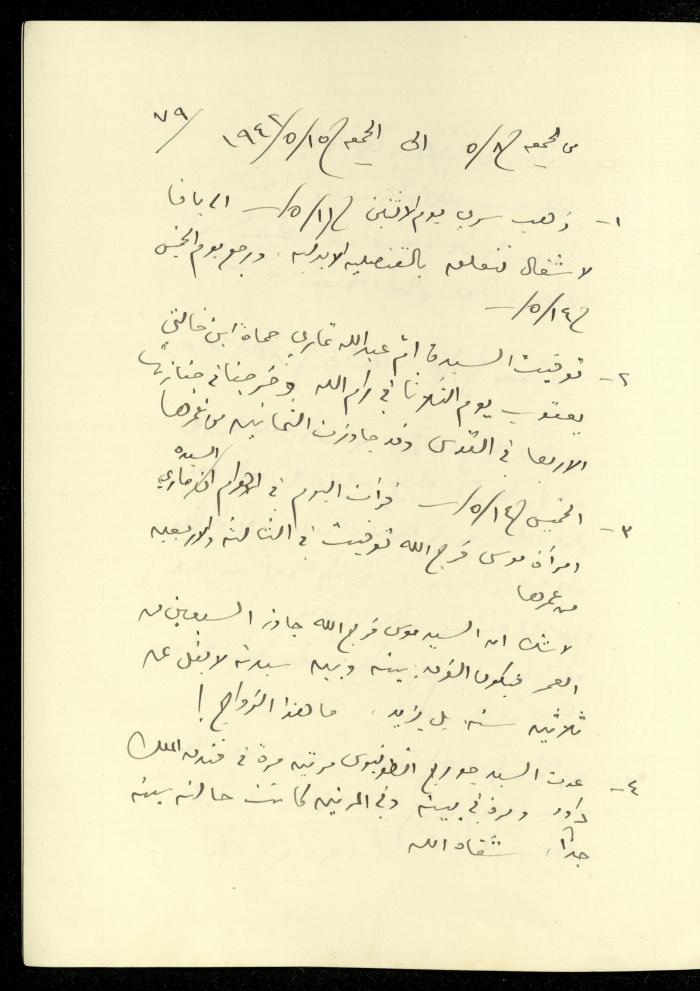 ٧٩/
من الجمعه ٥/٨ الى الجمعه ١٩٤٢/٥/١٥
١- ذهب سري يوم الاثنين ٥/١١ الى يافا
لاشغال تتعلق بالقنصليه ورجع يوم الخميس
٥/١٤
٢- توفيت السيدة ام عبدالله غاري حماة ابن خالتي
يعقوب يوم الثلاثا في رام الله وخرجنا في جنازتها
الاربعا في القدس وقد جاوزت الثمانين من عمرها
٣- الخميس ٥/١٤ قرأت اليوم في الاهرام ان السيده ماري
امرأة موسى فرج الله توفيت في الثالثة والاربعين
من عمرها
لا شك ان السيد موسى فرج الله جاوز السبعين من
العمر فيكون الفرق بينه وبين سيدته لا يقل عن
ثلاثين سنه، بل يزيد، ما هذا الزواج !
٤- عدت السيد جورج انطونيوس مرتين مرة في فندق الملك
داود ومرة في بيته وفي المرتين كانت حالته سيئه
جداً، شفاه الله